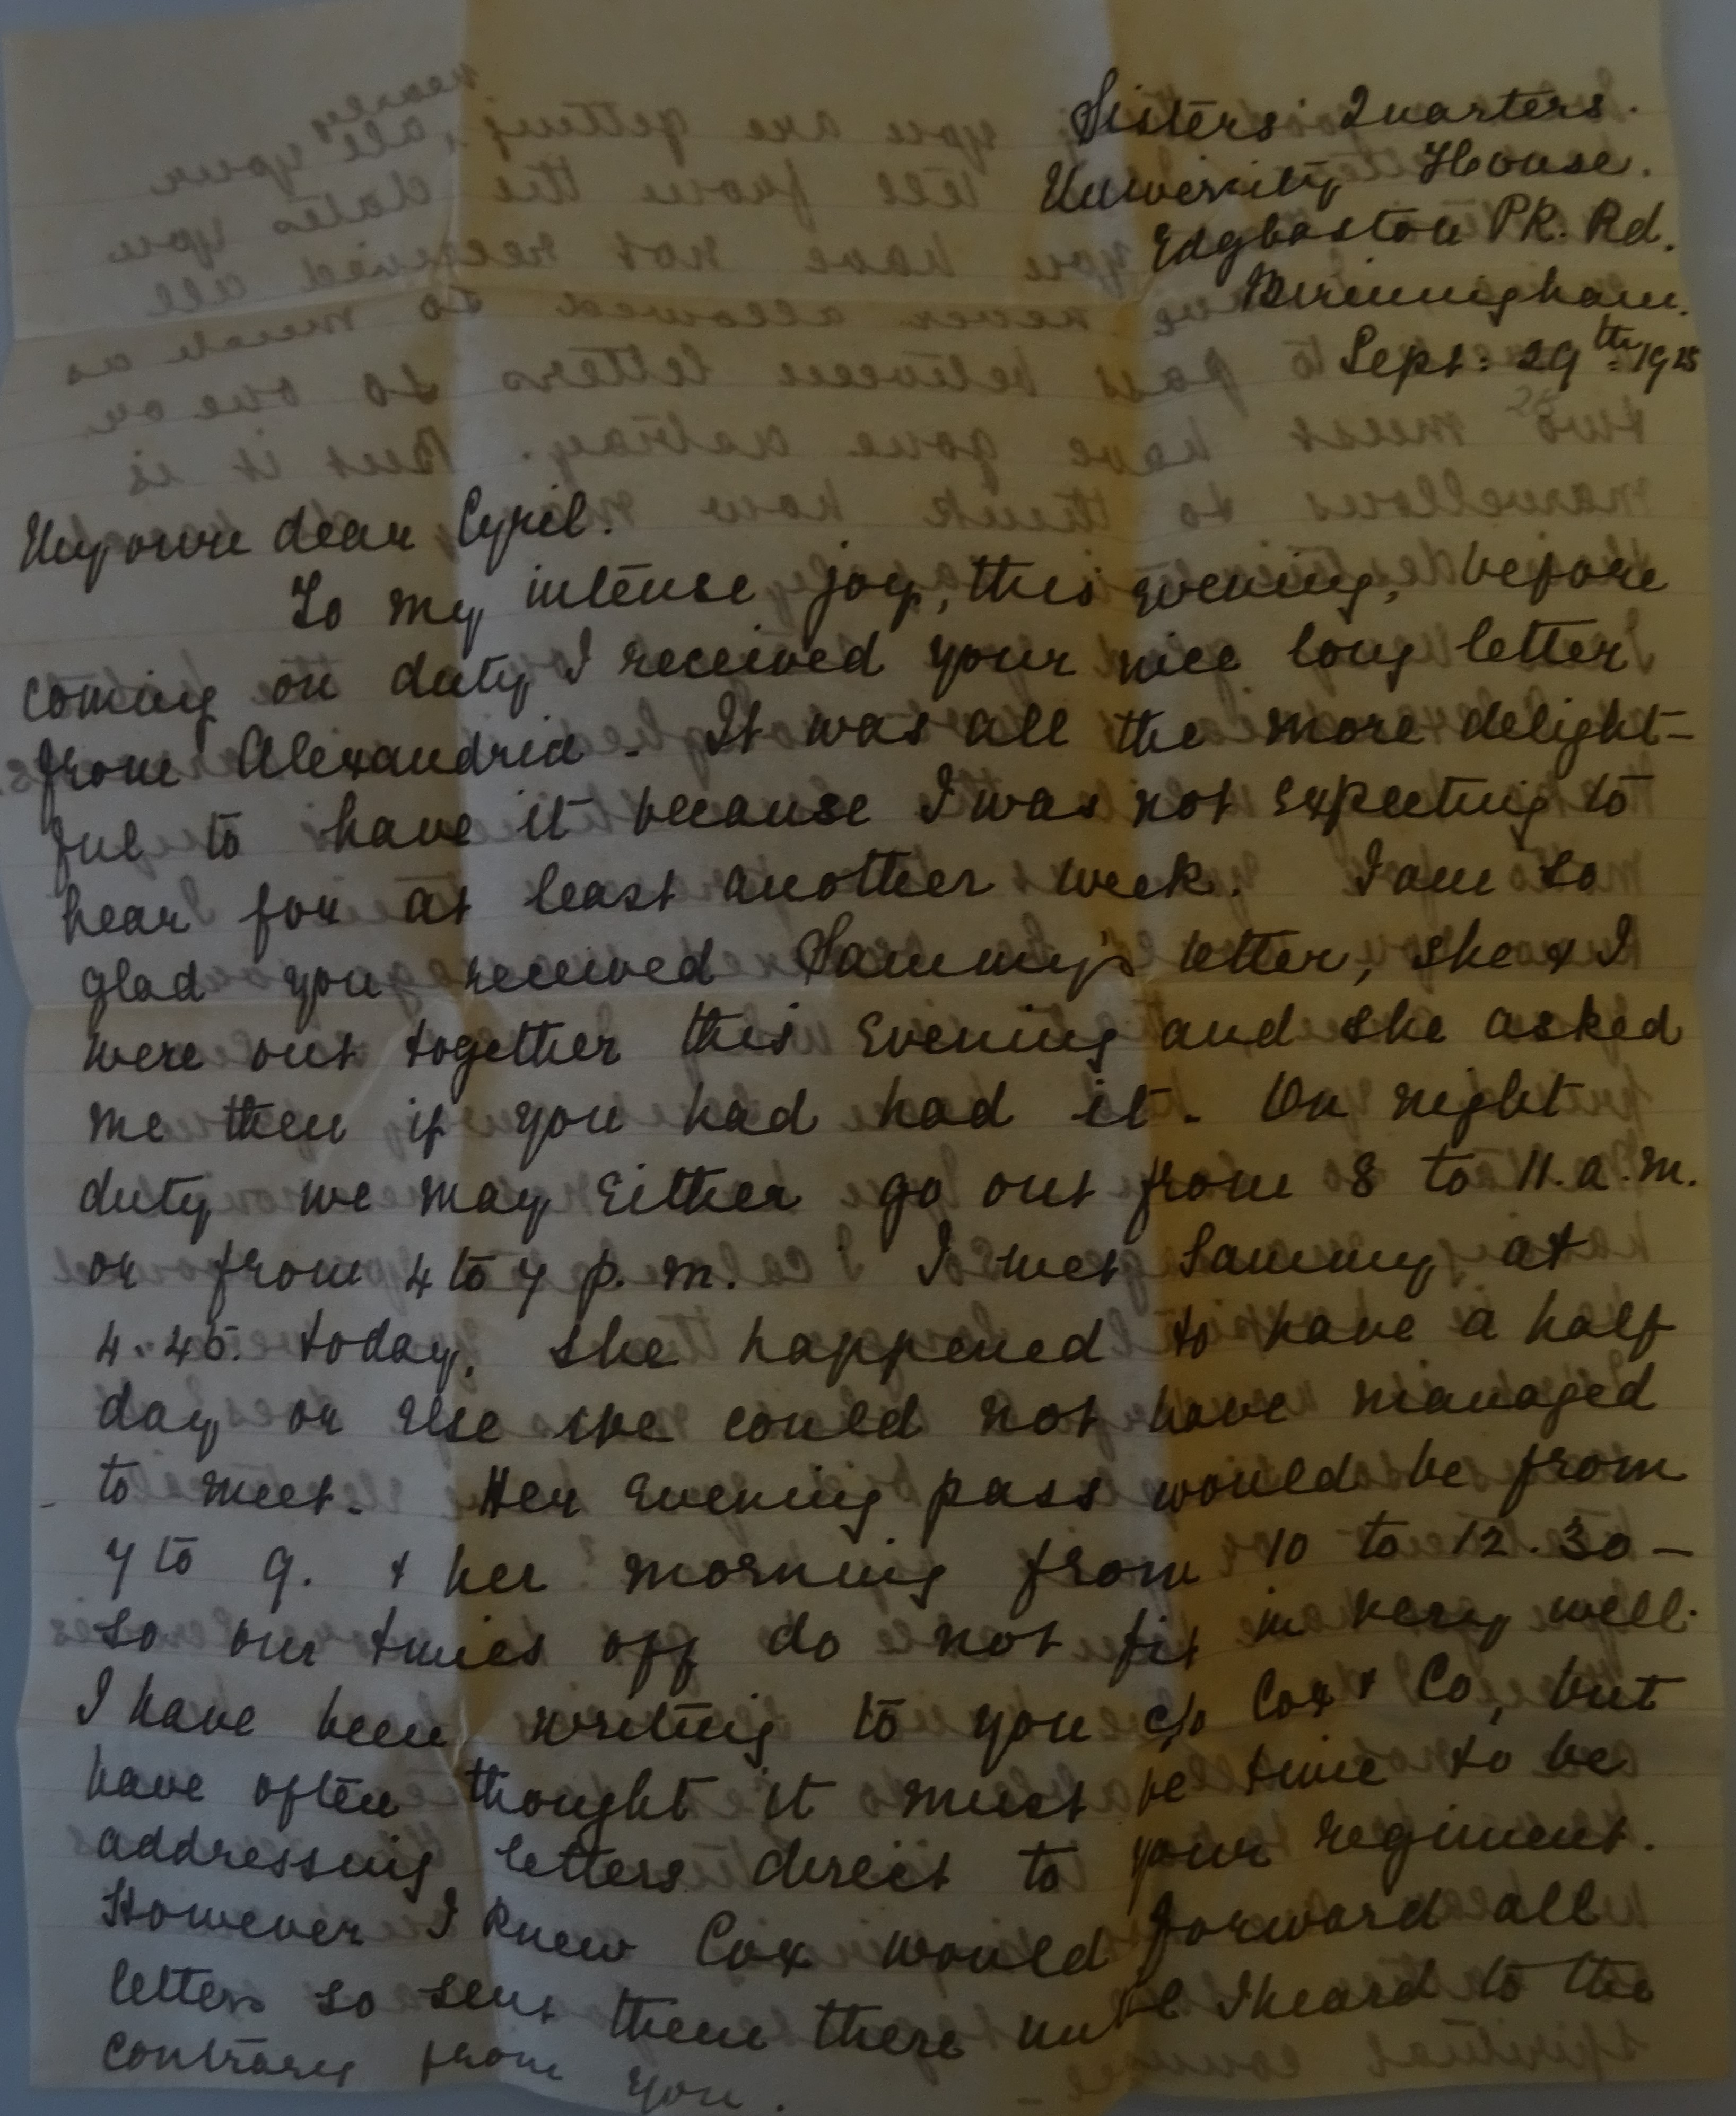 Sisters' Quarters.
University House.
Edgbaston PK. Rd.
Birmingham.
Sept: 29th 1915
My own dear Cyril.
To my intense joy, this evening, before
coming on duty I received your nice long letter
from Alexandria. It was all the more delight-
ful to have it because I was not expecting to
hear for at least another week. I am so
glad you received Sammy's letter, she & I
were out together this evening and she asked
me then if you had had it. On night
duty we may either go out from 8 to 11.a.m.
or from 4 to 7 p.m. I met Sammy at
4.45. today, she happened to have a half
day or else we could not have managed
to meet. Her evening pass would be from
7 to 9. & her morning from 10 to 12.30 -
so our times off do not fit in very well.
I have been writing to you c/o Cox & Co, but
have often thought it must be time to be
addressing letters direct to your regiment.
However I knew Cox would forward all
letters so sent them there until I heard to the
contrary from you.